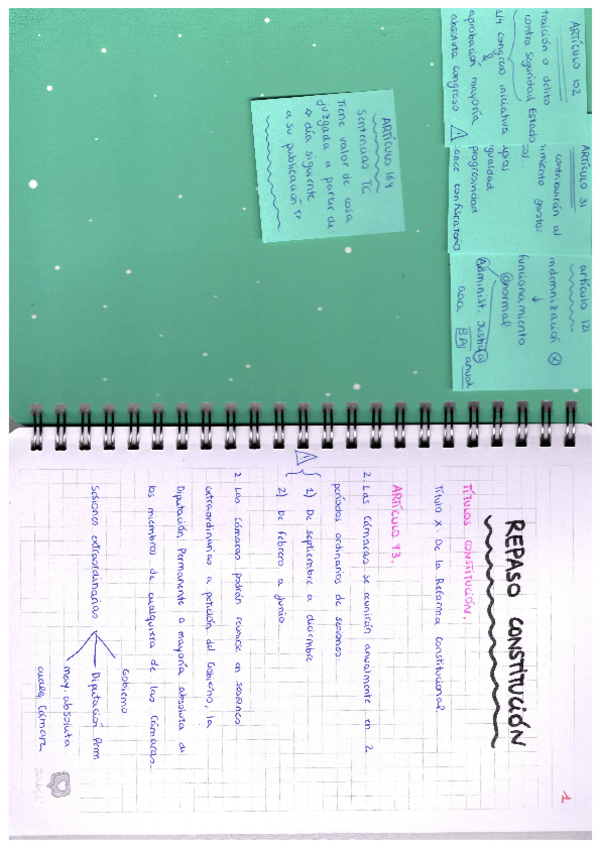 ARTÍCULO 102
traición o delito
contra seguridad Estado
1/4 congreso iniciativa
&
aprobación mayoría
absoluta congreso
ARTÍCULO 31
contribuirán al
gasto
igualdad
progresividad
confiscatorio
artículo 121
indemnización
funcionamiento
anormal
Administ. Justicia
anual
ARTÍCULO 164
Sentencias TC
Tiene valor de cosa
juzgada a partir de:
día siguiente
a su publicación
1
REPASO CONSTITUCIÓN
TÍTULOS CONSTITUCIÓN.
Título X. De la Reforma Constitucional
ARTÍCULO 73.
2. Las Cámaras se reunirán anualmente en 2
periodos ordinarios de sesiones:
1) De septiembre a diciembre
2) De febrero a junio
2 Las Cámaras podrán reunirse en sesiones
extraordinarias a petición del Gobierno, la
Diputación Permanente o mayoría absoluta de
los miembros de cualquiera de las Cámaras.
Sesiones extraordinarias
Gobierno
Diputación Perm
may. absoluta
cualq Cámara